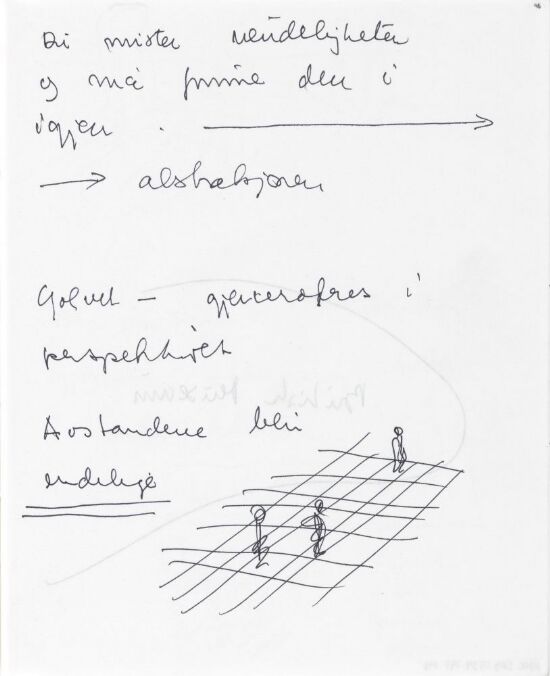 Di mister uendeligheten
og må finne den i
igjen .
→ abstraksjonen
Golvet — gjenerobres i
perspektivet
Avstandene blir
endelige
British Museum